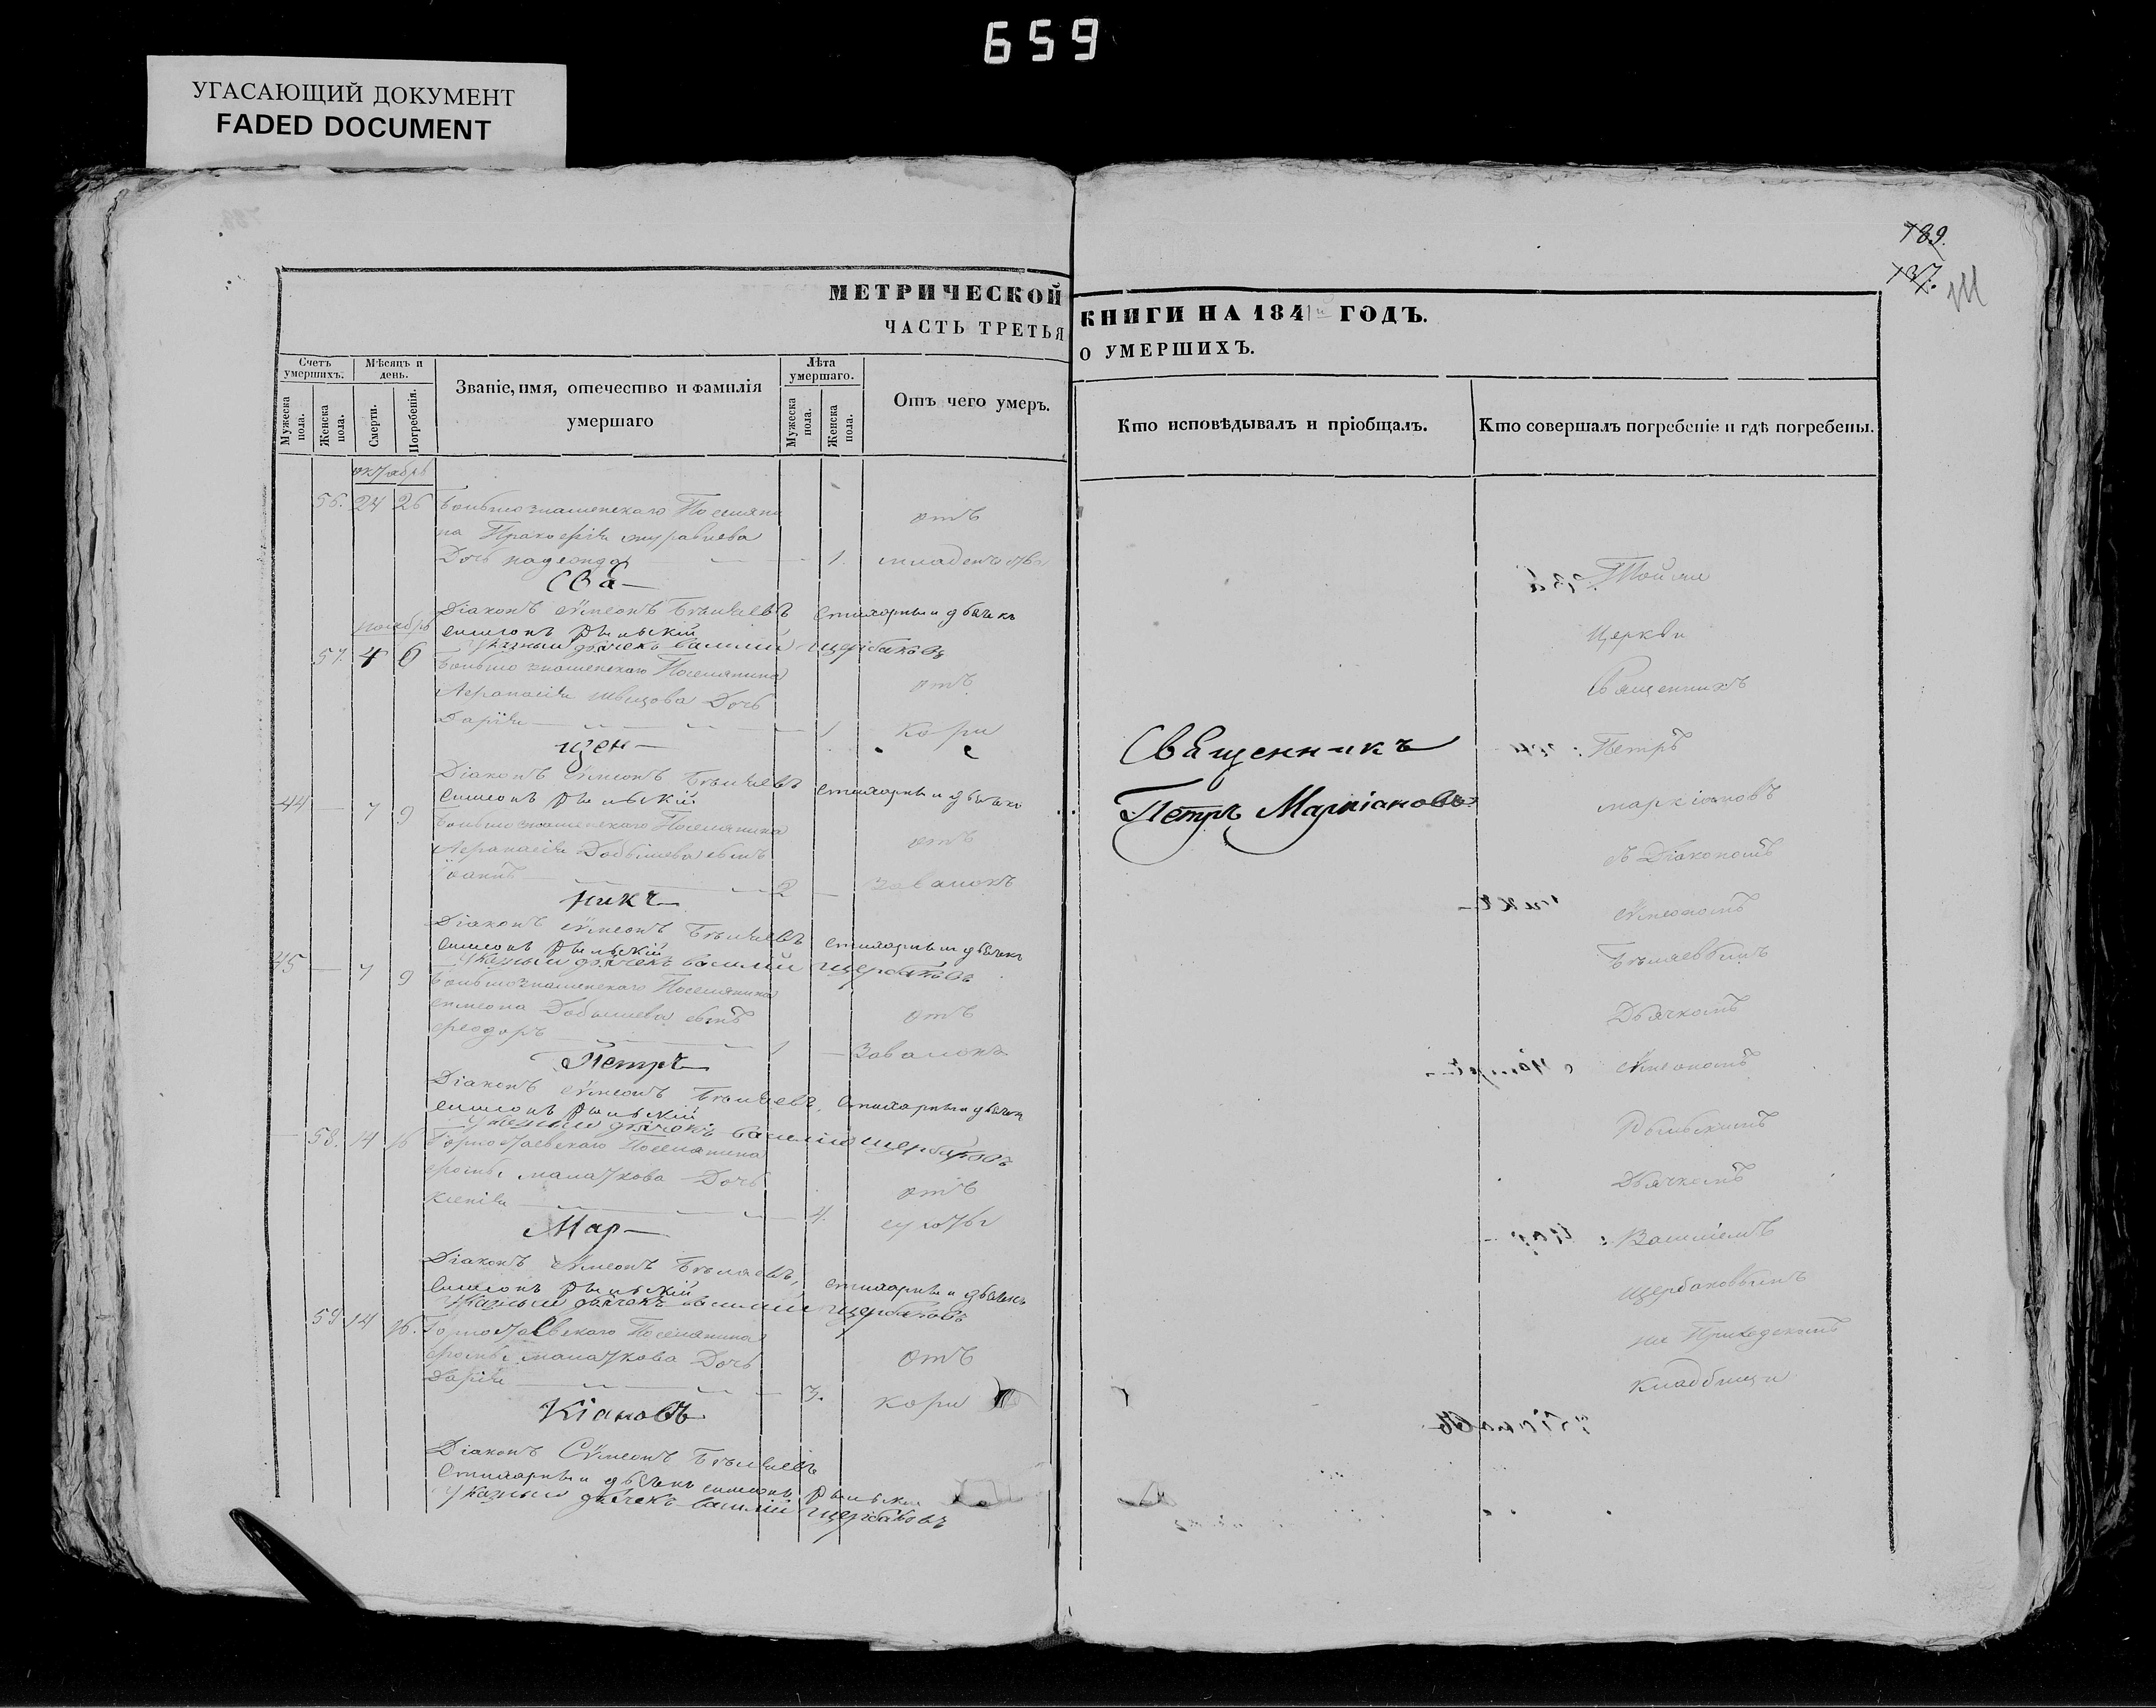 659
УГАСАЮЩИЙ ДОКУМЕНТ
FADED DOCUMENT
189.
137.
МЕТРИЧЕСКОЙ КНИГИ НА 1841 ГОДЪ.
ЧАСТЬ ТРЕТЬЯ О УМЕРШИХЪ.
Счетъ умершихъ.
Мужеска пола.
Женска пола.
Мѣсяцъ и день.
Смерти.
Погребенія.
Званіе, имя, отечество и фамилія
умершаго
Лѣта умершаго.
Мужеска пола.
Женска пола.
Отъ чего умеръ.
Кто исповѣдывалъ и пріобщалъ.
Кто совершалъ погребеніе и гдѣ погребены.
октябрь
56. 24 26 Большознаменскаго Поселяни
на Прокофія Муравьева отъ
Дочь надежда 1. младенчества
Сва
Діаконъ Сѵмеонъ Бѣляевъ Стихарный дьячекъ
ноябрь Симеонъ Рыльскій
Указный дьячекъ Василій Щербаковъ
57. 4 6 Большознаменскаго Поселянина
Аѳанасія Швецова Дочь отъ
Дарія 1 кори
щен
Діаконъ Сѵмеонъ Бѣляевъ Стихарный дьячекъ
Симеонъ Рыльскій
44 7 9 Большознаменскаго Поселянина
Аѳанасія Добышева сынъ отъ
Іоаннъ 2 Завалокъ
никъ
Діаконъ Сѵмеонъ Бѣляевъ Стихарный дьячекъ
Симеонъ Рыльскій
Указный дьячекъ Василій Щербаковъ
45 7 9 Большознаменскаго Поселянина
Симеона Добышева сынъ отъ
Ѳеодоръ 1 Завалокъ
Петръ
Діаконъ Сѵмеонъ Бѣляевъ, Стихарный дьячекъ
Симеонъ Рыльскій
Указный дьячекъ Василій Щербаковъ
58. 14 16 Горностаевскаго Поселянина
Ѳомы Малаткова Дочь отъ
Ксенія 4. сухоты
Мар
Діаконъ Сѵмеонъ Бѣляевъ, Стихарный дьячекъ
Симеонъ Рыльскій
Указный дьячекъ Василій Щербаковъ
59 14 16. Горностаевскаго Поселянина
Ѳомы Малаткова Дочь отъ
Дарія 3. кори
кіановъ
Діаконъ Сѵмеонъ Бѣляевъ
Стихарный дьячекъ Симеонъ Рыльскій
Указный дьячекъ Василій Щербаковъ
Священникъ
Петръ Маркіановъ
Той же
Церкви
Священникъ
Петръ
Маркіановъ
съ Діакономъ
Сѵмеономъ
Бѣляевымъ
Дьячкомъ
Симеономъ
Рыльскимъ
Дьячкомъ
Василіемъ
Щербаковымъ
на Приходскомъ
Кладбищи